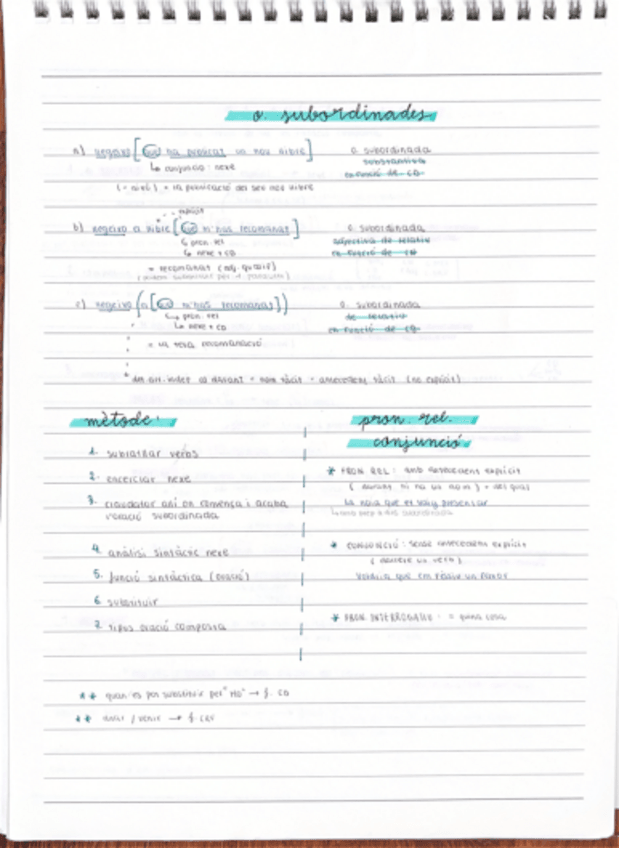 o. subordinades
a) llegeixo [que ha publicat un nou llibre]
o. subordinada
substantiva
en funció de CD
↳ conjunció: nexe
(= això) = la publicació del seu nou llibre
explícit
b) llegeixo el llibre [que m'has recomanat]
o. subordinada
adjectiva de relatiu
en funció de CN
↳ pron. rel
↳ nexe + CD
= recomanat (adj. qualif)
c) llegeixo (el [que m'has recomanat])
o. subordinada
de relatiu
en funció de CD
↳ pron. rel
↳ nexe + CD
= la teva recomanació
davant = nom tàcit = antecedent tàcit (no explícit)
mètode:
1. subratllar verbs
2. encerclar nexe
3. claudàtor allí on comença i acaba
l'oració subordinada
4. anàlisi sintàctic nexe
5. funció sintàctica (oració)
6. substituir
7. tipus oració composta
pron. rel.
conjunció
* PRON REL: amb antecedent explícit
(davant hi ha un nom) = del qual
La noia que et vaig presentar
* CONJUNCIÓ: sense antecedent explícit
(darrere un verb)
Voldria que em fessis un favor
* PRON INTERROGATIU: = quina cosa
** quan es pot substituir per "ho" → f. CD
** → f. CRV